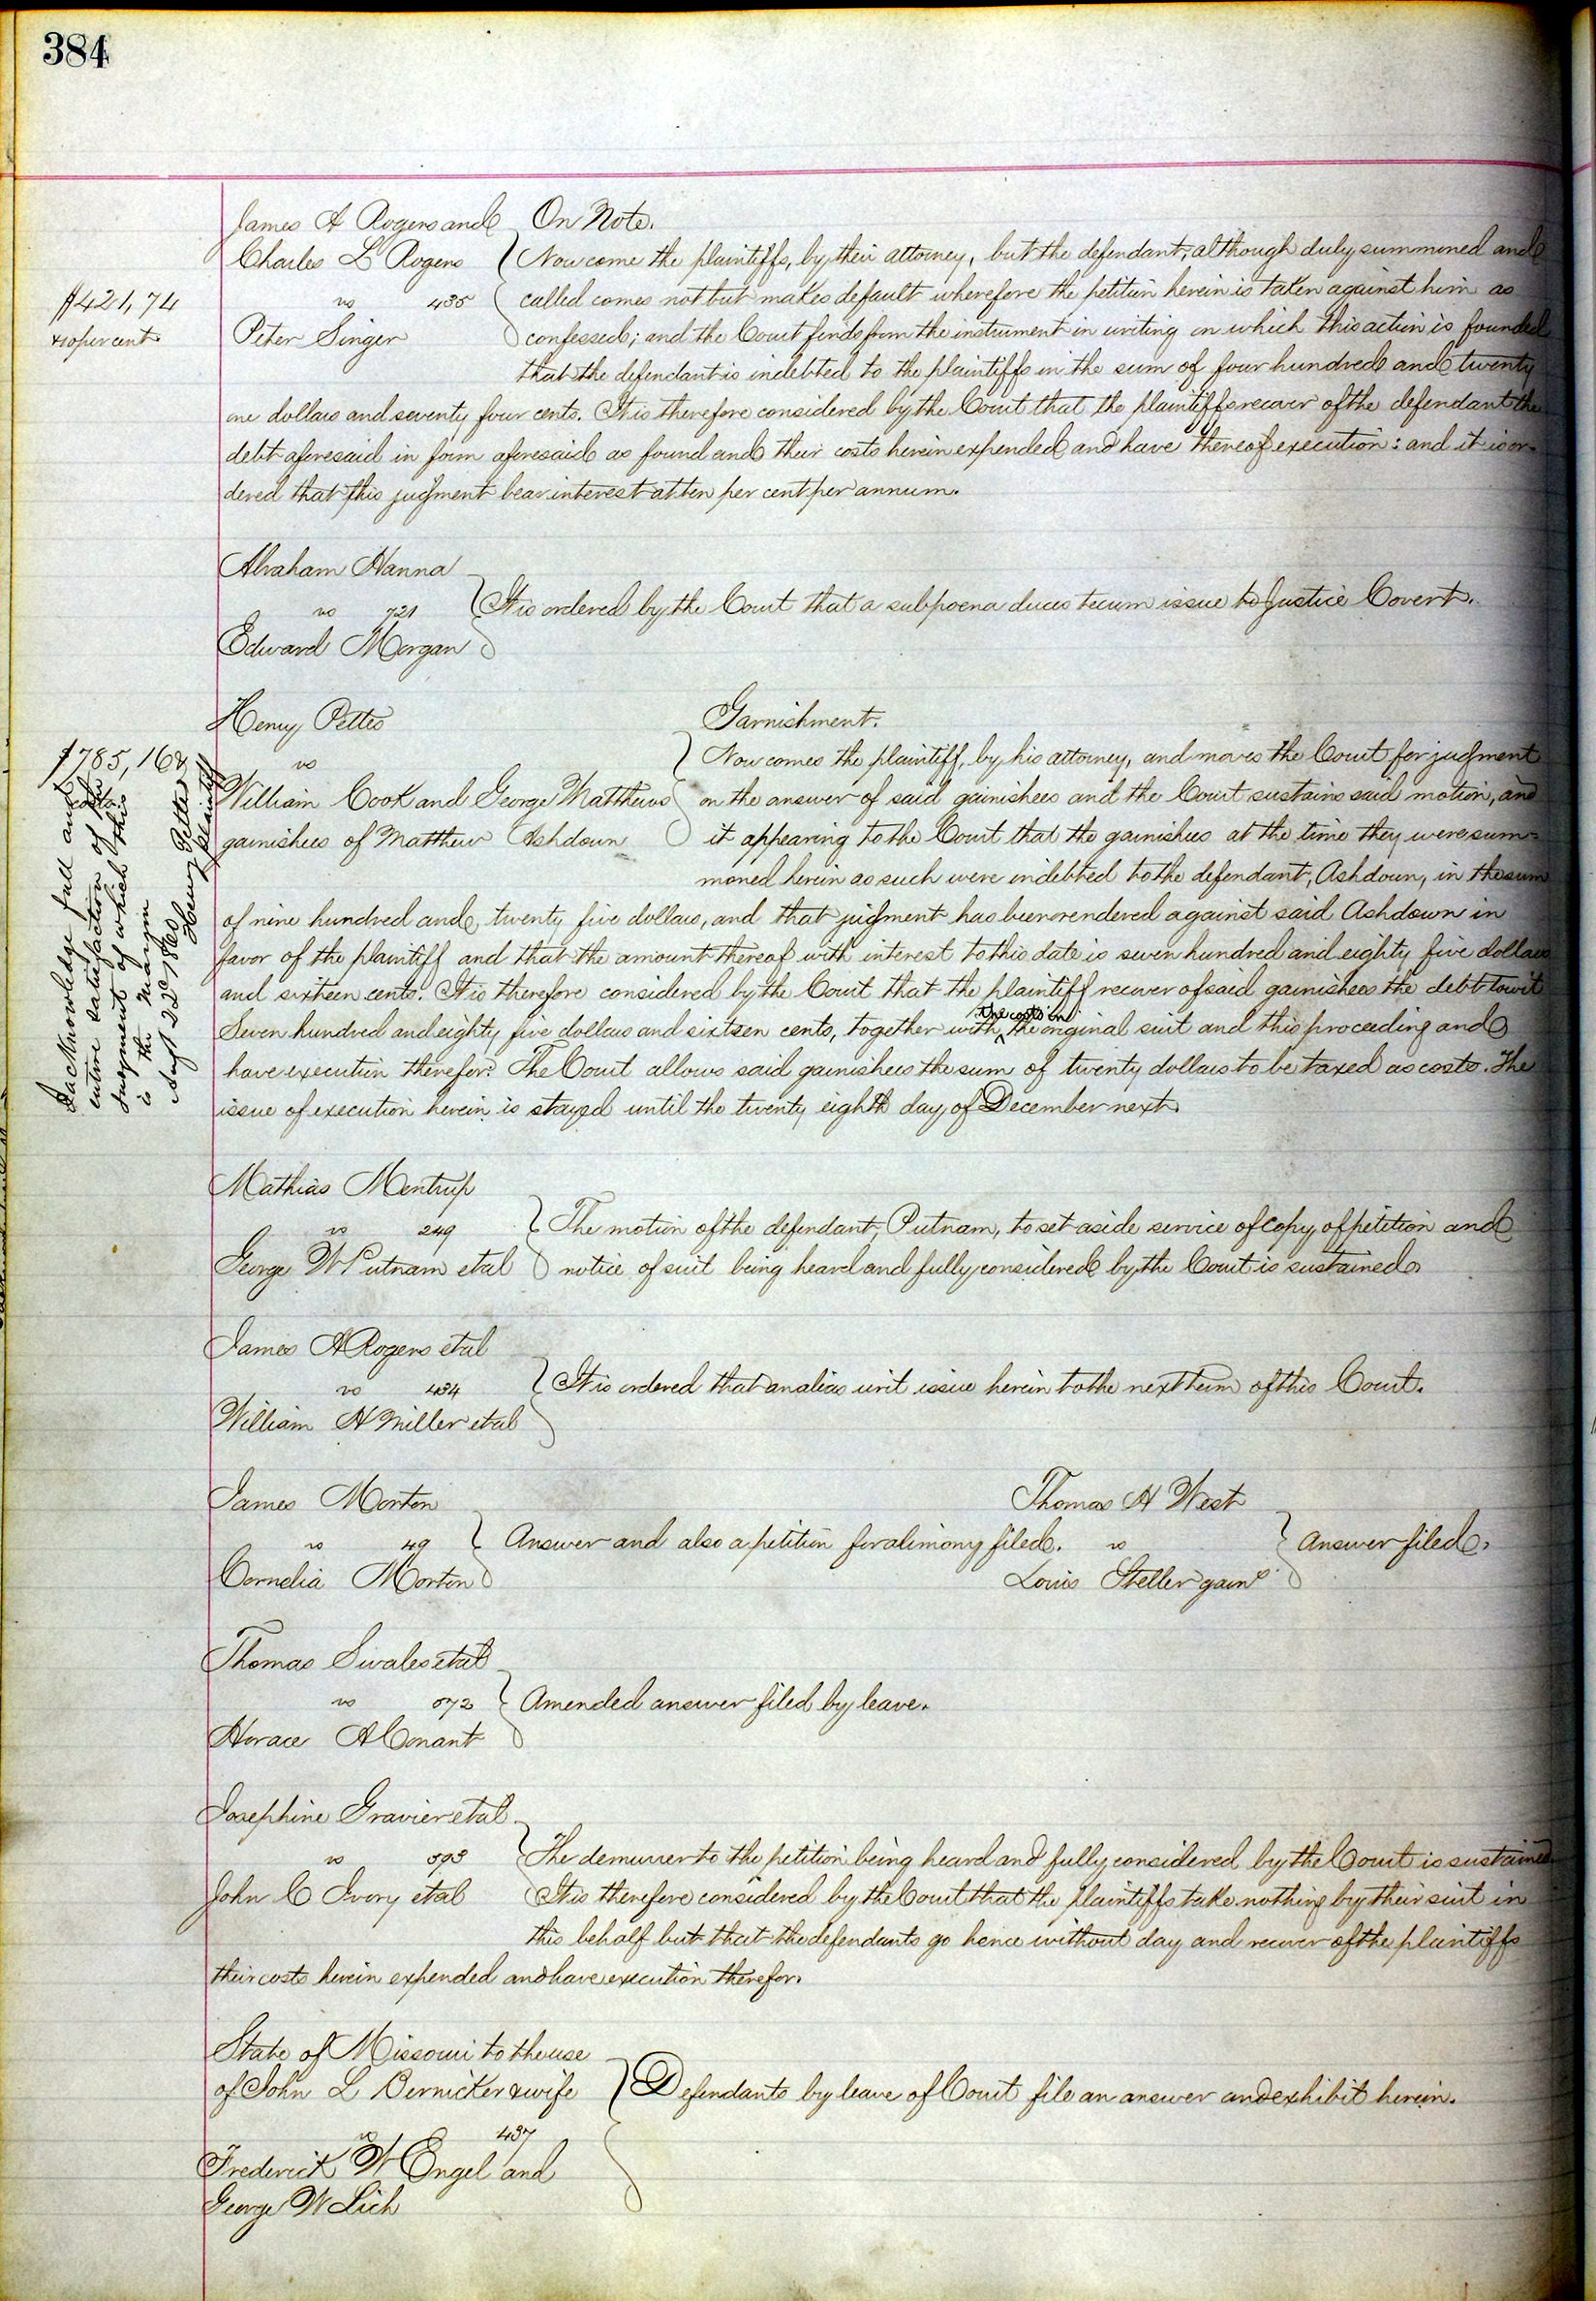 384
James A Rogers and
Charles L Rogers
vs 435
Peter Singer
$421,74
&10 per cent
On Note.
Now come the plaintiffs, by their attorney, but the defendant, although duly summoned and
called comes not but makes default wherefore the petition herein is taken against him as
confessed; and the Court finds from the instrument in writing on which this action is founded
that the defendant is indebted to the plaintiffs in the sum of four hundred and twenty
one dollars and seventy four cents. It is therefore considered by the Court that the plaintiffs recover of the defendant the
debt aforesaid in form aforesaid as found and their costs herein expended and have thereof execution: and it is or-
dered that this judgment bear interest at ten per cent per annum.
Abraham Hanna
vs 721
Edward Morgan
It is ordered by the Court that a subpoena duces tecum issue to Justice Covert.
Henry Pettes
vs
William Cook and George Matthews
garnishees of Matthew Ashdown
$785,16&
costs
I acknowledge full and
entire satisfaction of the
Judgment of which this
is the Margin
Sept 22d 1860
Henry Pettes
plaintiff
Garnishment.
Now comes the plaintiff, by his attorney, and moves the Court for judgment
on the answer of said garnishees and the Court sustains said motion, and
it appearing to the Court that the garnishees at the time they were sum-
moned herein as such were indebted to the defendant, Ashdown, in the sum
of nine hundred and twenty five dollars, and that judgment has been rendered against said Ashdown in
favor of the plaintiff and that the amount thereof with interest to this date is seven hundred and eighty five dollars
and sixteen cents. It is therefore considered by the Court that the plaintiff recover of said garnishees the debt towit
the costs in
Seven hundred and eighty five dollars and sixteen cents, together with ^ the original suit and this proceeding and
have execution therefor. The Court allows said garnishees the sum of twenty dollars to be taxed as costs. The
issue of execution herein is stayed until the twenty eighth day of December next.
Mathias Mentrup
vs 249
George W Putnam et al
The motion of the defendant, Putnam, to set aside service of copy of petition and
notice of suit being heard and fully considered by the Court is sustained.
James A Rogers et al
vs 434
William H Miller et al
It is ordered that an alias writ issue herein to the next term of this Court.
James Morton
vs 49
Cornelia Morton
Answer and also a petition for alimony filed.
Thomas H West
vs
Louis Steller garne.
Answer filed.
Thomas Swales et al
vs 572
Horace A Conant
Amended answer filed by leave.
Josephine Gravier et al
vs 593
John C Ivory et al
The demurrer to the petition being heard and fully considered by the Court is sustained
It is therefore considered by the Court that the plaintiffs take nothing by their suit in
this behalf but that the defendants go hence without day and recover of the plaintiffs
their costs herein expended and have execution therefor.
State of Missouri to the use
of John L Bernicker & wife
vs 437
Frederick W Engel and
George W Lich
Defendants by leave of Court file an answer and exhibit herein.